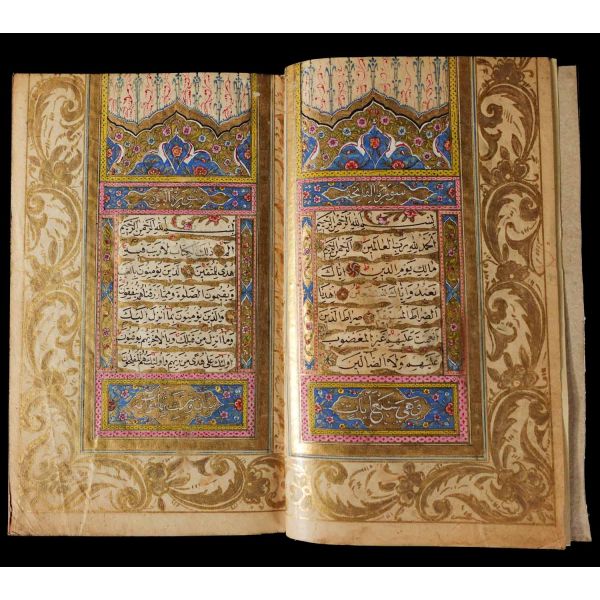 سورة الفاتحة
بسم الله الرحمن الرحيم
الحمد لله رب العالمين الرحمن الرحيم
مالك يوم الدين اياك
نعبد واياك نستعين اهدنا
الصراط المستقيم صراط الذين
انعمت عليهم غير المغضوب
عليهم ولا الضالين
وهي سبع آيات
سورة البقرة
بسم الله الرحمن الرحيم
الم ذلك الكتاب لا ريب فيه
هدى للمتقين الذين يؤمنون بالغيب
ويقيمون الصلوة ومما رزقناهم ينفقون
والذين يؤمنون بما انزل اليك
وما انزل من قبلك وبالاخرة هم يوقنون
اولئك على هدى من ربهم واولئك هم المفلحون